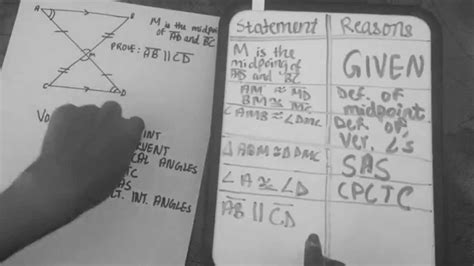 A
B
M
C
D
M is the midpoint
of AD and BC
PROVE: AB || CD
INT
ANGLES
INT. ANGLES
Statement
Reasons
M is the
midpoing of
AD and BC
GIVEN
AM ≅ MD
BM ≅ MC
Def. of
midpoint
∠AMB ≅ ∠DMC
Def. of
Ver. ∠s
△ABM ≅ △DMC
SAS
∠A ≅ ∠D
CPCTC
AB || CD